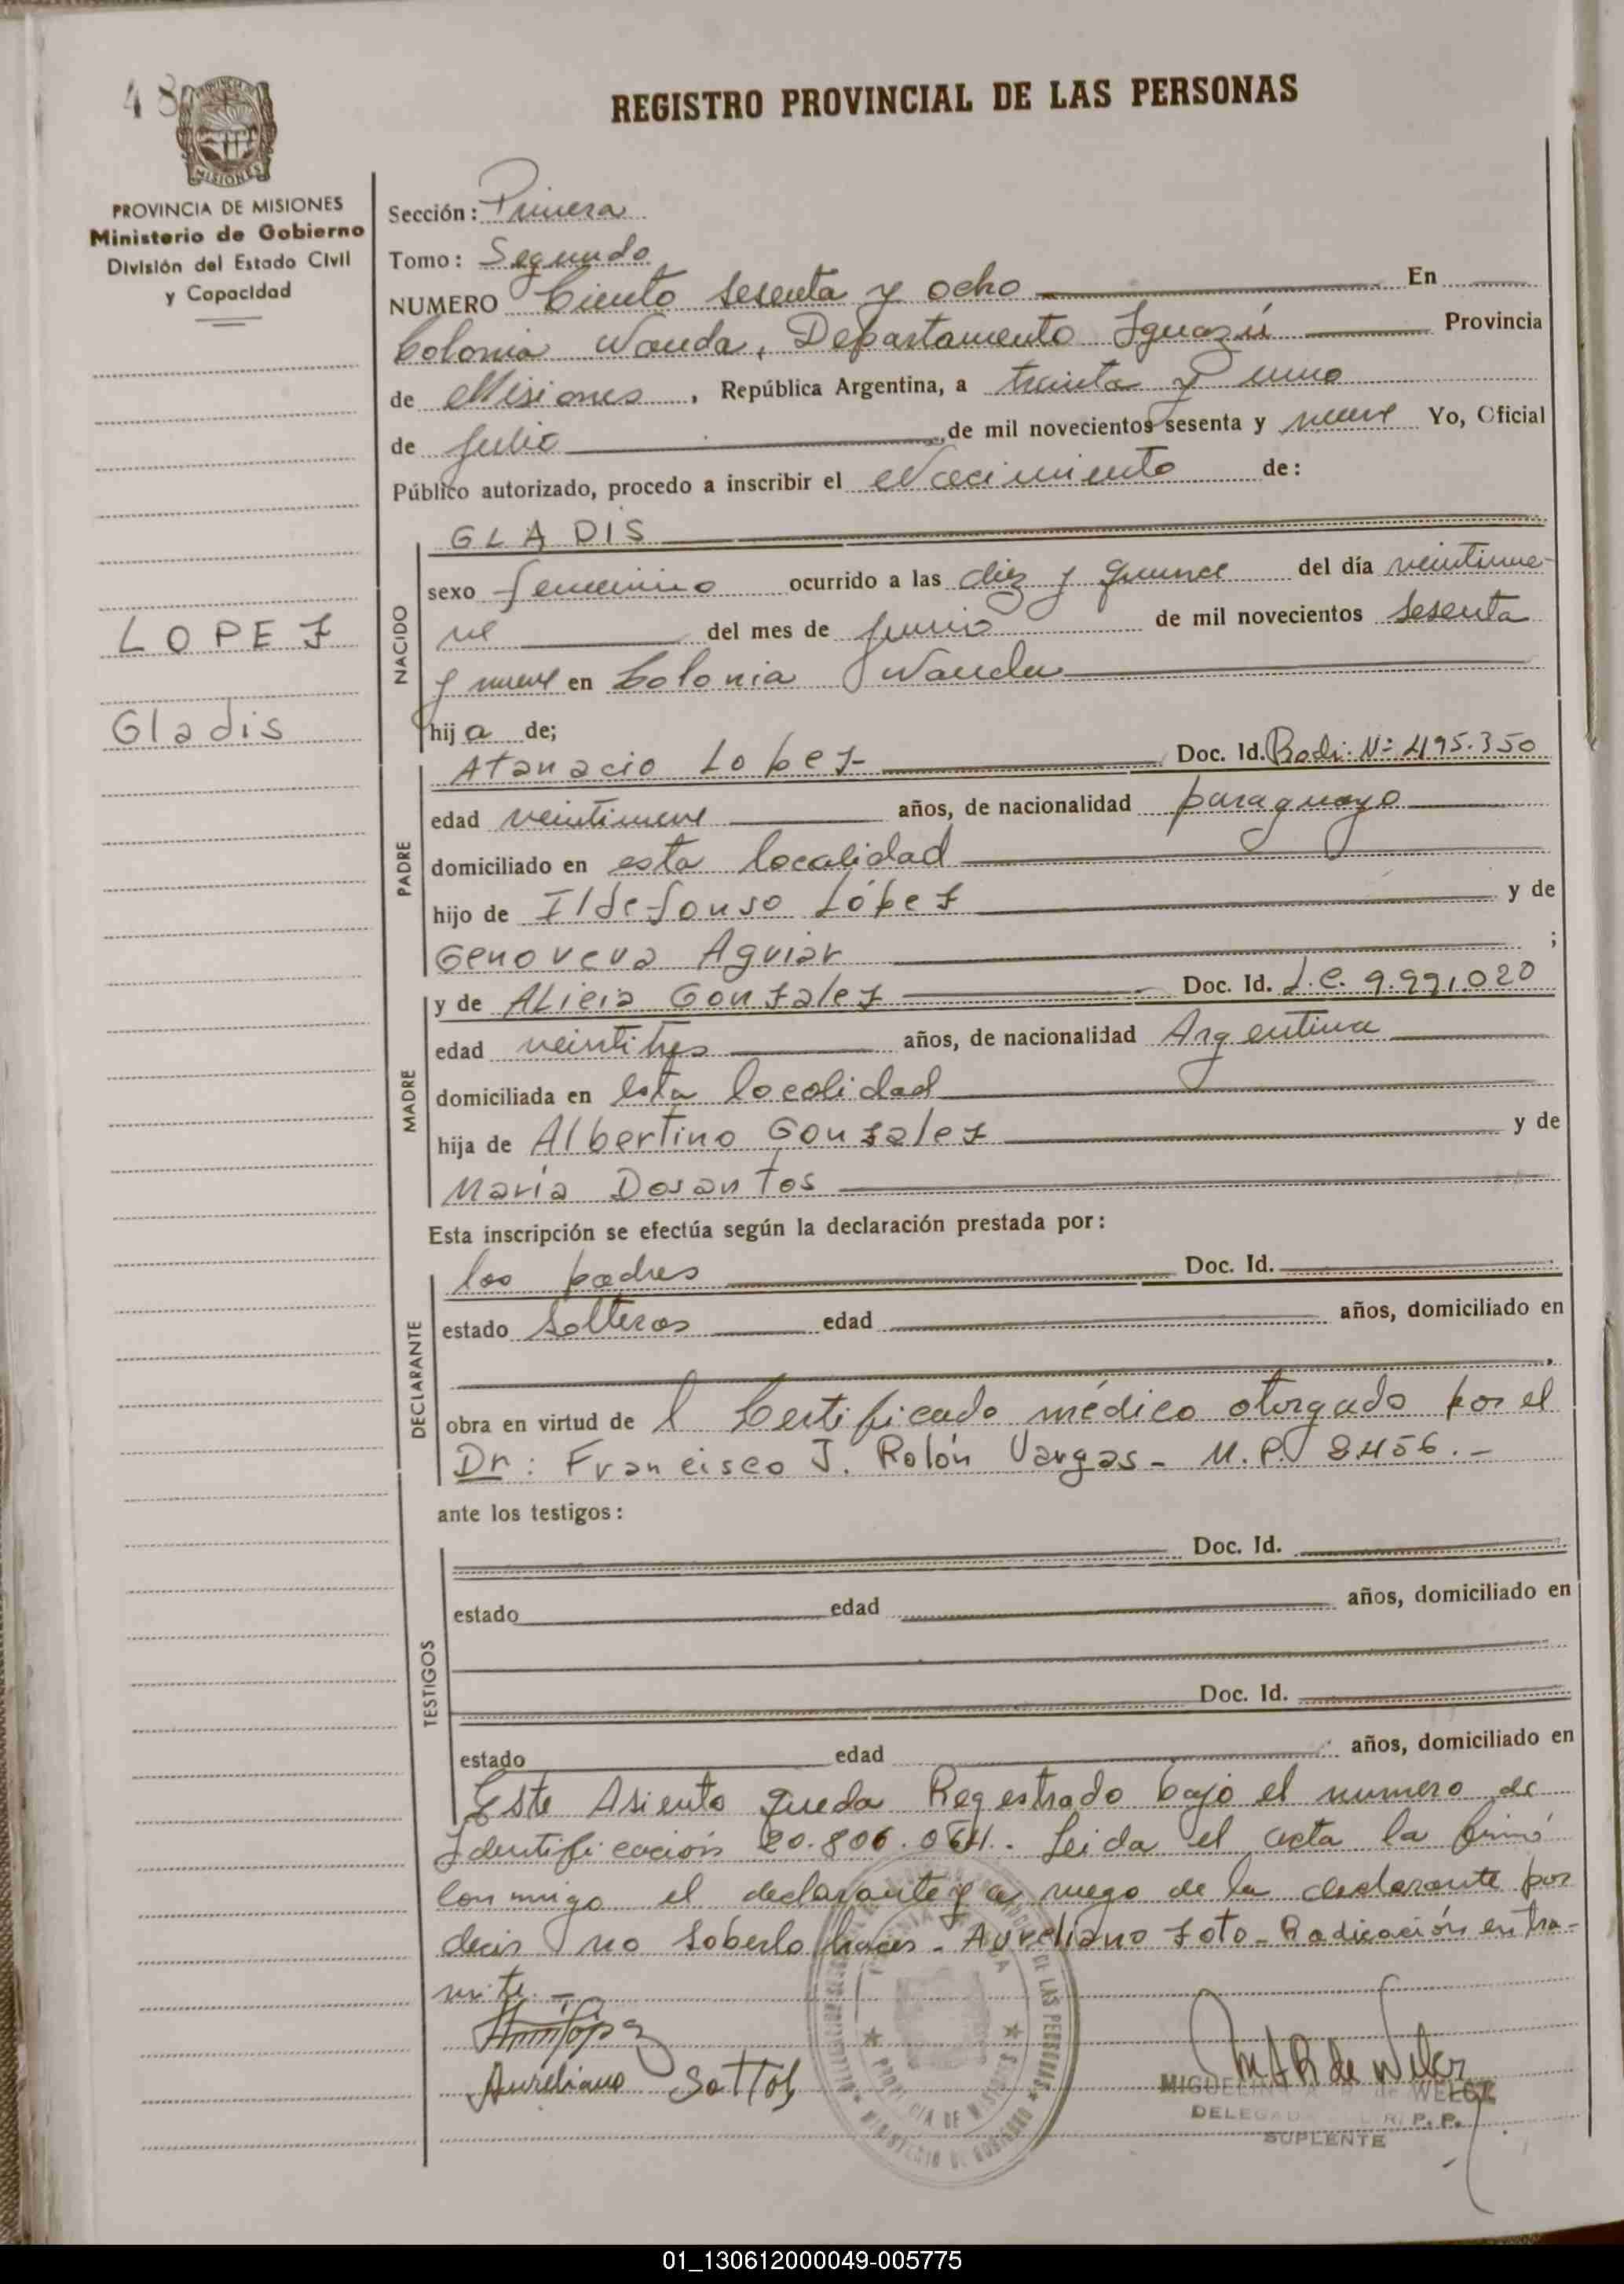 48
REGISTRO PROVINCIAL DE LAS PERSONAS
MISIONES
PROVINCIA DE MISIONES
Ministerio de Gobierno
División del Estado Civil
y Capacidad
LOPEZ
Gladis
Sección: Primera
Tomo: Segundo
NUMERO Ciento sesenta y ocho En
Colonia Wanda, Departamento Iguazú Provincia
de Misiones, República Argentina, a treinta y uno
de Julio de mil novecientos sesenta y nueve Yo, Oficial
Público autorizado, procedo a inscribir el Nacimiento de:
NACIDO
GLADIS
sexo femenino ocurrido a las diez y quince del día veintinue-
ve del mes de junio de mil novecientos sesenta
y nueve en Colonia Wanda
hija de;
PADRE
Atanacio Lopez Doc. Id. Radi. Nº 495.350
edad veintinueve años, de nacionalidad paraguayo
domiciliado en esta localidad
hijo de Ildefonso López y de
Genoveva Aguiar ;
MADRE
y de Alicia Gonzalez Doc. Id. L.C. 9.991.020
edad veintitres años, de nacionalidad Argentina
domiciliada en esta localidad
hija de Albertino Gonzalez y de
María Dosantos
Esta inscripción se efectúa según la declaración prestada por:
DECLARANTE
los padres Doc. Id.
estado Solteros edad años, domiciliado en
obra en virtud del Certificado médico otorgado por el
Dr: Francisco J. Rolón Vargas - M.P. 8456.-
ante los testigos:
TESTIGOS
Doc. Id.
estado edad años, domiciliado en
Doc. Id.
estado edad años, domiciliado en
Este Asiento queda Registrado bajo el numero de
Identificación 20.806.064. Leida el acta la firmó
conmigo el declarante y a ruego de la declarante por
decir no saberlo hacer - Aureliano Zoto - Radicación en tra-
mite.-
Aureliano Sottos
MAR de Welcz
MIGUELINA A. R. de WELCZ
DELEGADA R. P. P.
SUPLENTE
DE LAS PERSONAS
PROVINCIA DE MISIONES
MINISTERIO DE GOBIERNO
01_130612000049-005775